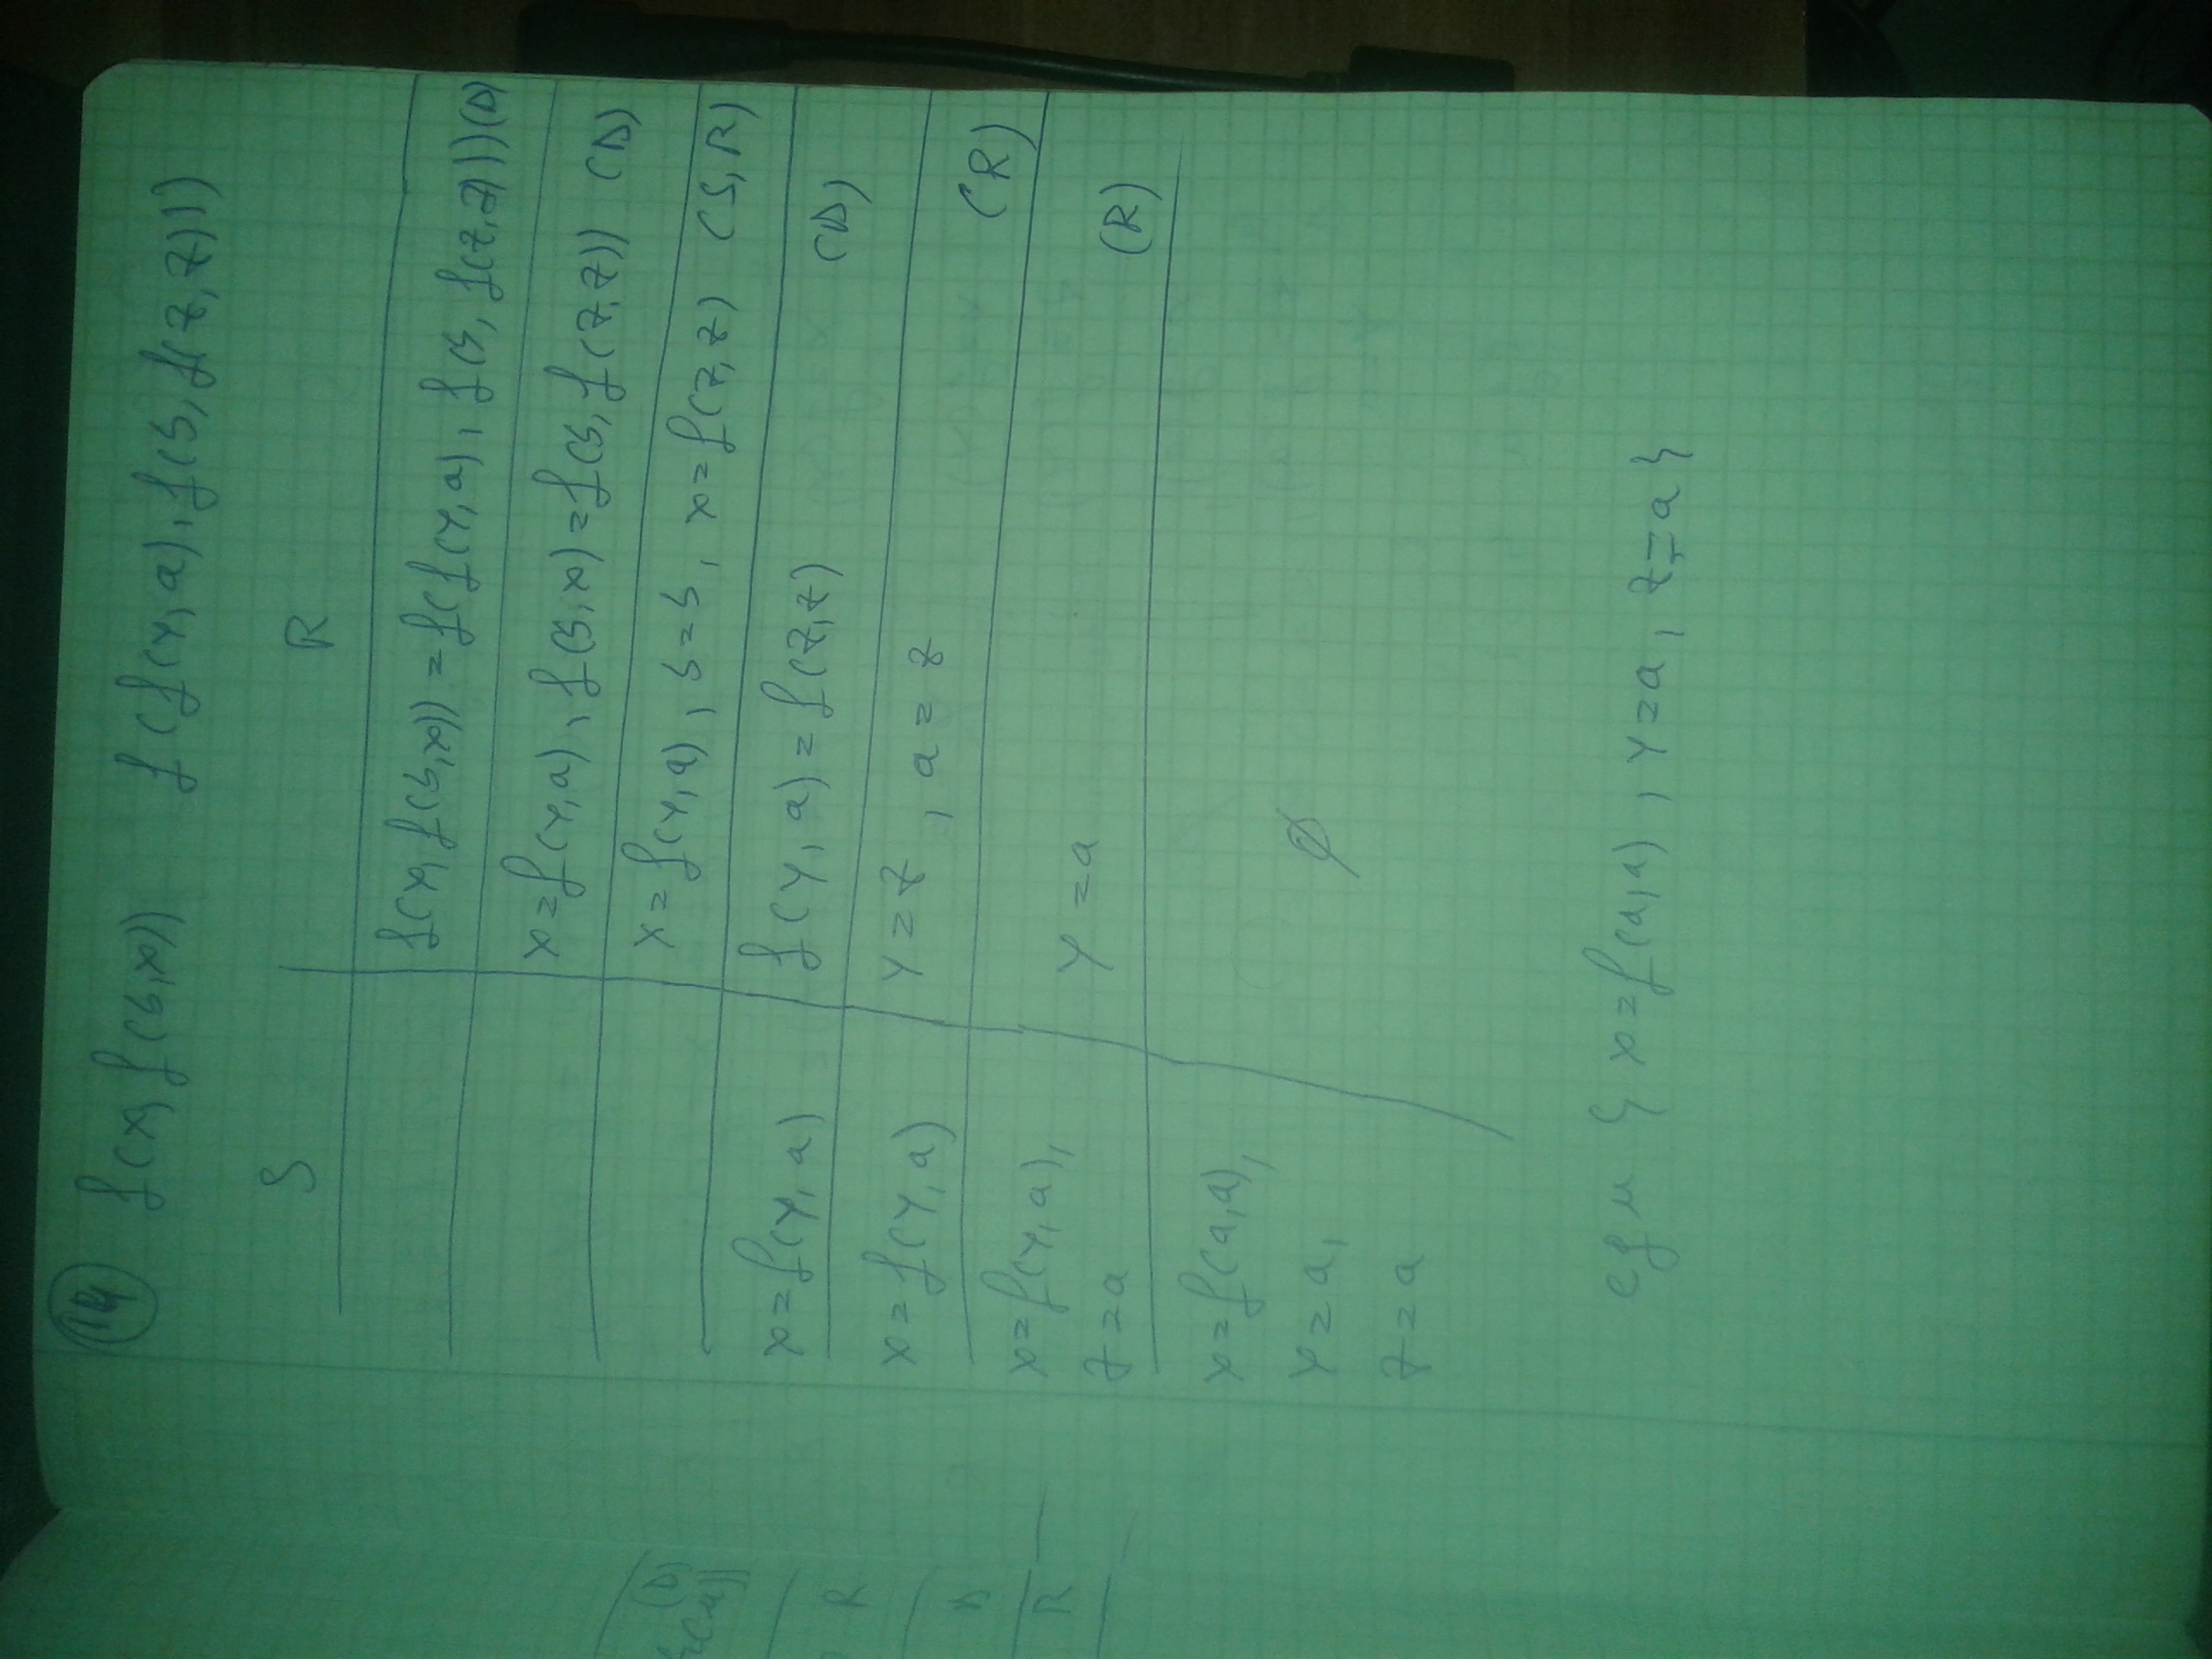 14 f(x, f(b,x)) f(f(y,a), f(b, f(z,z)))
S R
f(x, f(b,x)) = f(f(y,a), f(b, f(z,z))) (D)
x=f(y,a), f(b,x)=f(b, f(z,z)) (D)
x=f(y,a), b=b, x=f(z,z) (S,R)
x=f(y,a) f(y,a)=f(z,z) (D)
x=f(y,a) y=z, a=z (R)
x=f(y,a),
z=a y=a (R)
x=f(a,a),
y=a, ∅
z=a
cgu { x=f(a,a), y=a, z=a }
(D)
R
D
R